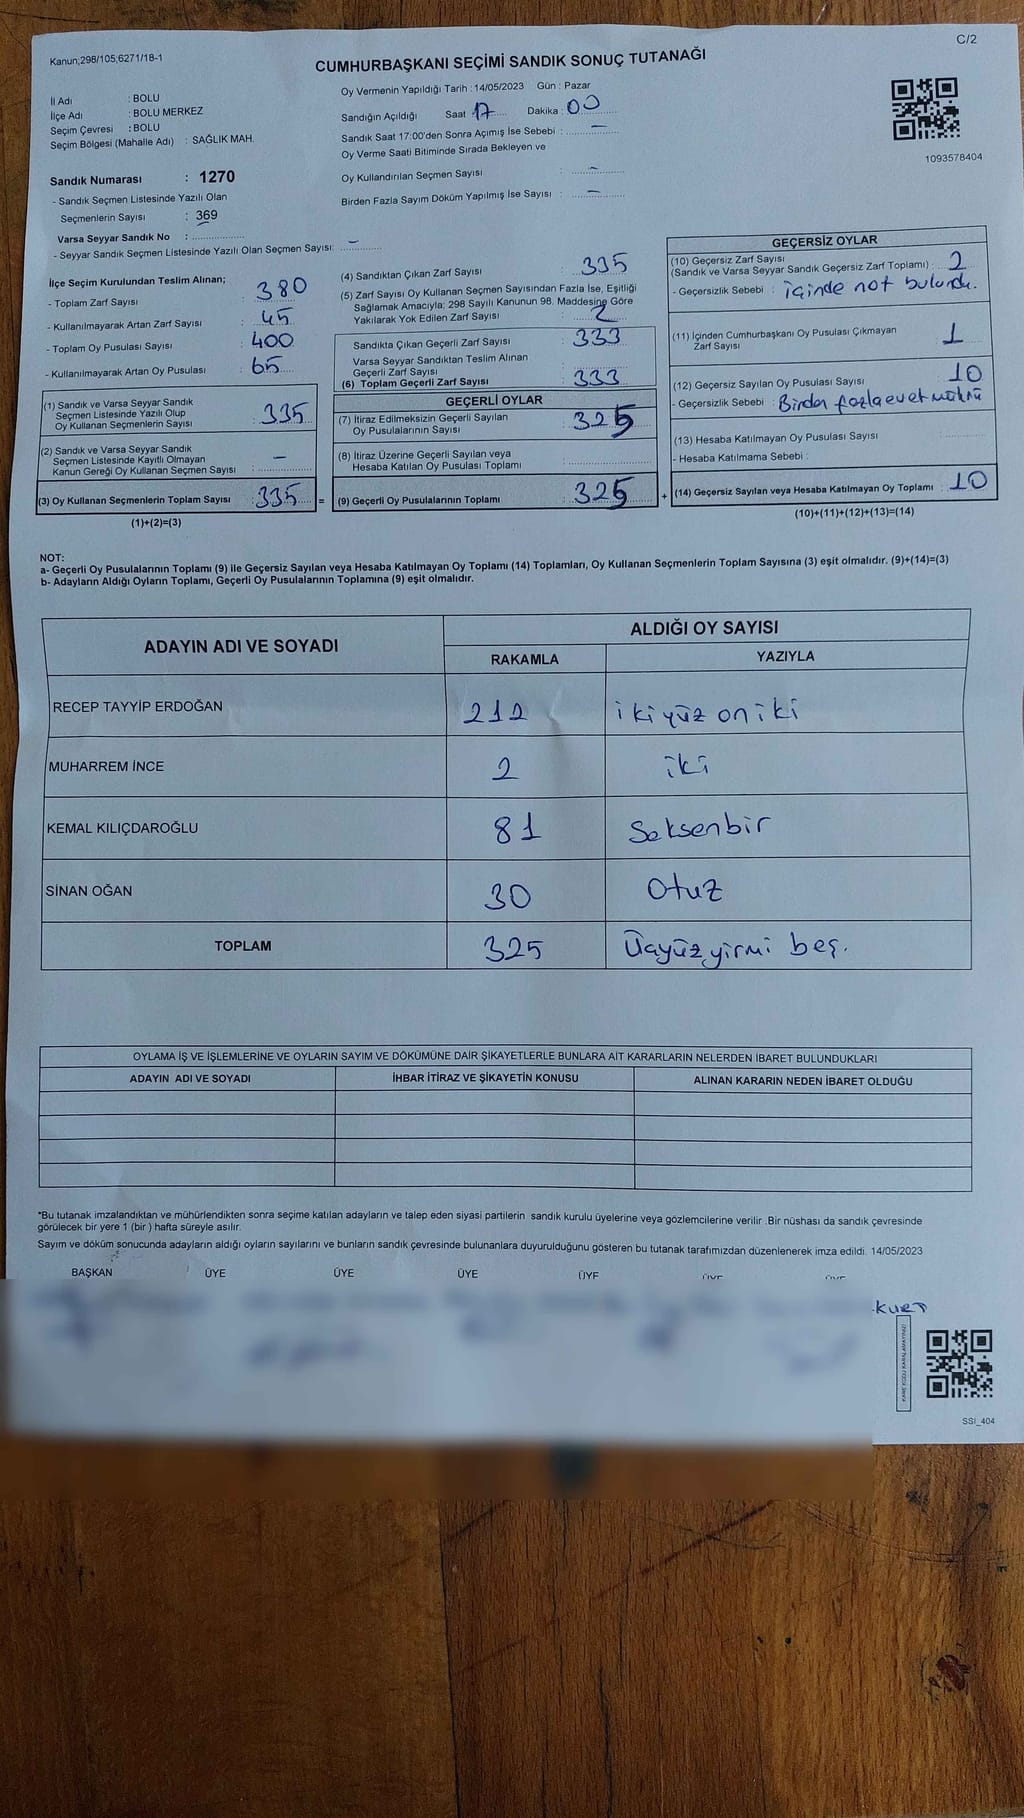 Kanun;298/105;6271/18-1
C/2
CUMHURBAŞKANI SEÇİMİ SANDIK SONUÇ TUTANAĞI
İl Adı : BOLU
İlçe Adı : BOLU MERKEZ
Seçim Çevresi : BOLU
Seçim Bölgesi (Mahalle Adı) : SAĞLIK MAH.
Oy Vermenin Yapıldığı Tarih : 14/05/2023 Gün : Pazar
Sandığın Açıldığı Saat 17 Dakika : 00
Sandık Saat 17:00'den Sonra Açımış İse Sebebi : –
Oy Verme Saati Bitiminde Sırada Bekleyen ve
Oy Kullandırılan Seçmen Sayısı : –
Birden Fazla Sayım Döküm Yapılmış İse Sayısı : –
1093578404
Sandık Numarası : 1270
- Sandık Seçmen Listesinde Yazılı Olan
Seçmenlerin Sayısı : 369
Varsa Seyyar Sandık No :
- Seyyar Sandık Seçmen Listesinde Yazılı Olan Seçmen Sayısı: –
İlçe Seçim Kurulundan Teslim Alınan;
- Toplam Zarf Sayısı : 380
- Kullanılmayarak Artan Zarf Sayısı : 45
- Toplam Oy Pusulası Sayısı : 400
- Kullanılmayarak Artan Oy Pusulası : 65
(1) Sandık ve Varsa Seyyar Sandık
Seçmen Listesinde Yazılı Olup
Oy Kullanan Seçmenlerin Sayısı : 335
(2) Sandık ve Varsa Seyyar Sandık
Seçmen Listesinde Kayıtlı Olmayan
Kanun Gereği Oy Kullanan Seçmen Sayısı : –
(3) Oy Kullanan Seçmenlerin Toplam Sayısı : 335 =
(1)+(2)=(3)
(4) Sandıktan Çıkan Zarf Sayısı : 335
(5) Zarf Sayısı Oy Kullanan Seçmen Sayısından Fazla İse, Eşitliği
Sağlamak Amacıyla; 298 Sayılı Kanunun 98. Maddesine Göre
Yakılarak Yok Edilen Zarf Sayısı : 2
Sandıkta Çıkan Geçerli Zarf Sayısı : 333
Varsa Seyyar Sandıktan Teslim Alınan
Geçerli Zarf Sayısı :
(6) Toplam Geçerli Zarf Sayısı : 333
GEÇERLİ OYLAR
(7) İtiraz Edilmeksizin Geçerli Sayılan
Oy Pusulalarının Sayısı : 325
(8) İtiraz Üzerine Geçerli Sayılan veya
Hesaba Katılan Oy Pusulası Toplamı :
(9) Geçerli Oy Pusulalarının Toplamı : 325 +
GEÇERSİZ OYLAR
(10) Geçersiz Zarf Sayısı
(Sandık ve Varsa Seyyar Sandık Geçersiz Zarf Toplamı) : 2
- Geçersizlik Sebebi : içinde not bulundu.
(11) İçinden Cumhurbaşkanı Oy Pusulası Çıkmayan
Zarf Sayısı : 1
(12) Geçersiz Sayılan Oy Pusulası Sayısı : 10
- Geçersizlik Sebebi : Birden fazla evet mührü
(13) Hesaba Katılmayan Oy Pusulası Sayısı :
- Hesaba Katılmama Sebebi :
(14) Geçersiz Sayılan veya Hesaba Katılmayan Oy Toplamı : 10
(10)+(11)+(12)+(13)=(14)
NOT:
a- Geçerli Oy Pusulalarının Toplamı (9) ile Geçersiz Sayılan veya Hesaba Katılmayan Oy Toplamı (14) Toplamları, Oy Kullanan Seçmenlerin Toplam Sayısına (3) eşit olmalıdır. (9)+(14)=(3)
b- Adayların Aldığı Oyların Toplamı, Geçerli Oy Pusulalarının Toplamına (9) eşit olmalıdır.
ADAYIN ADI VE SOYADI
ALDIĞI OY SAYISI
RAKAMLA YAZIYLA
RECEP TAYYİP ERDOĞAN 212 ikiyüz oniki
MUHARREM İNCE 2 iki
KEMAL KILIÇDAROĞLU 81 Seksenbir
SİNAN OĞAN 30 Otuz
TOPLAM 325 Üçyüzyirmi beş.
OYLAMA İŞ VE İŞLEMLERİNE VE OYLARIN SAYIM VE DÖKÜMÜNE DAİR ŞİKAYETLERLE BUNLARA AİT KARARLARIN NELERDEN İBARET BULUNDUKLARI
ADAYIN ADI VE SOYADI İHBAR İTİRAZ VE ŞİKAYETİN KONUSU ALINAN KARARIN NEDEN İBARET OLDUĞU
*Bu tutanak imzalandıktan ve mühürlendikten sonra seçime katılan adayların ve talep eden siyasi partilerin sandık kurulu üyelerine veya gözlemcilerine verilir .Bir nüshası da sandık çevresinde
görülecek bir yere 1 (bir ) hafta süreyle asılır.
Sayım ve döküm sonucunda adayların aldığı oyların sayılarını ve bunların sandık çevresinde bulunanlara duyurulduğunu gösteren bu tutanak tarafımızdan düzenlenerek imza edildi. 14/05/2023
BAŞKAN ÜYE ÜYE ÜYE ÜYE ÜYE ÜYE
SSI_404